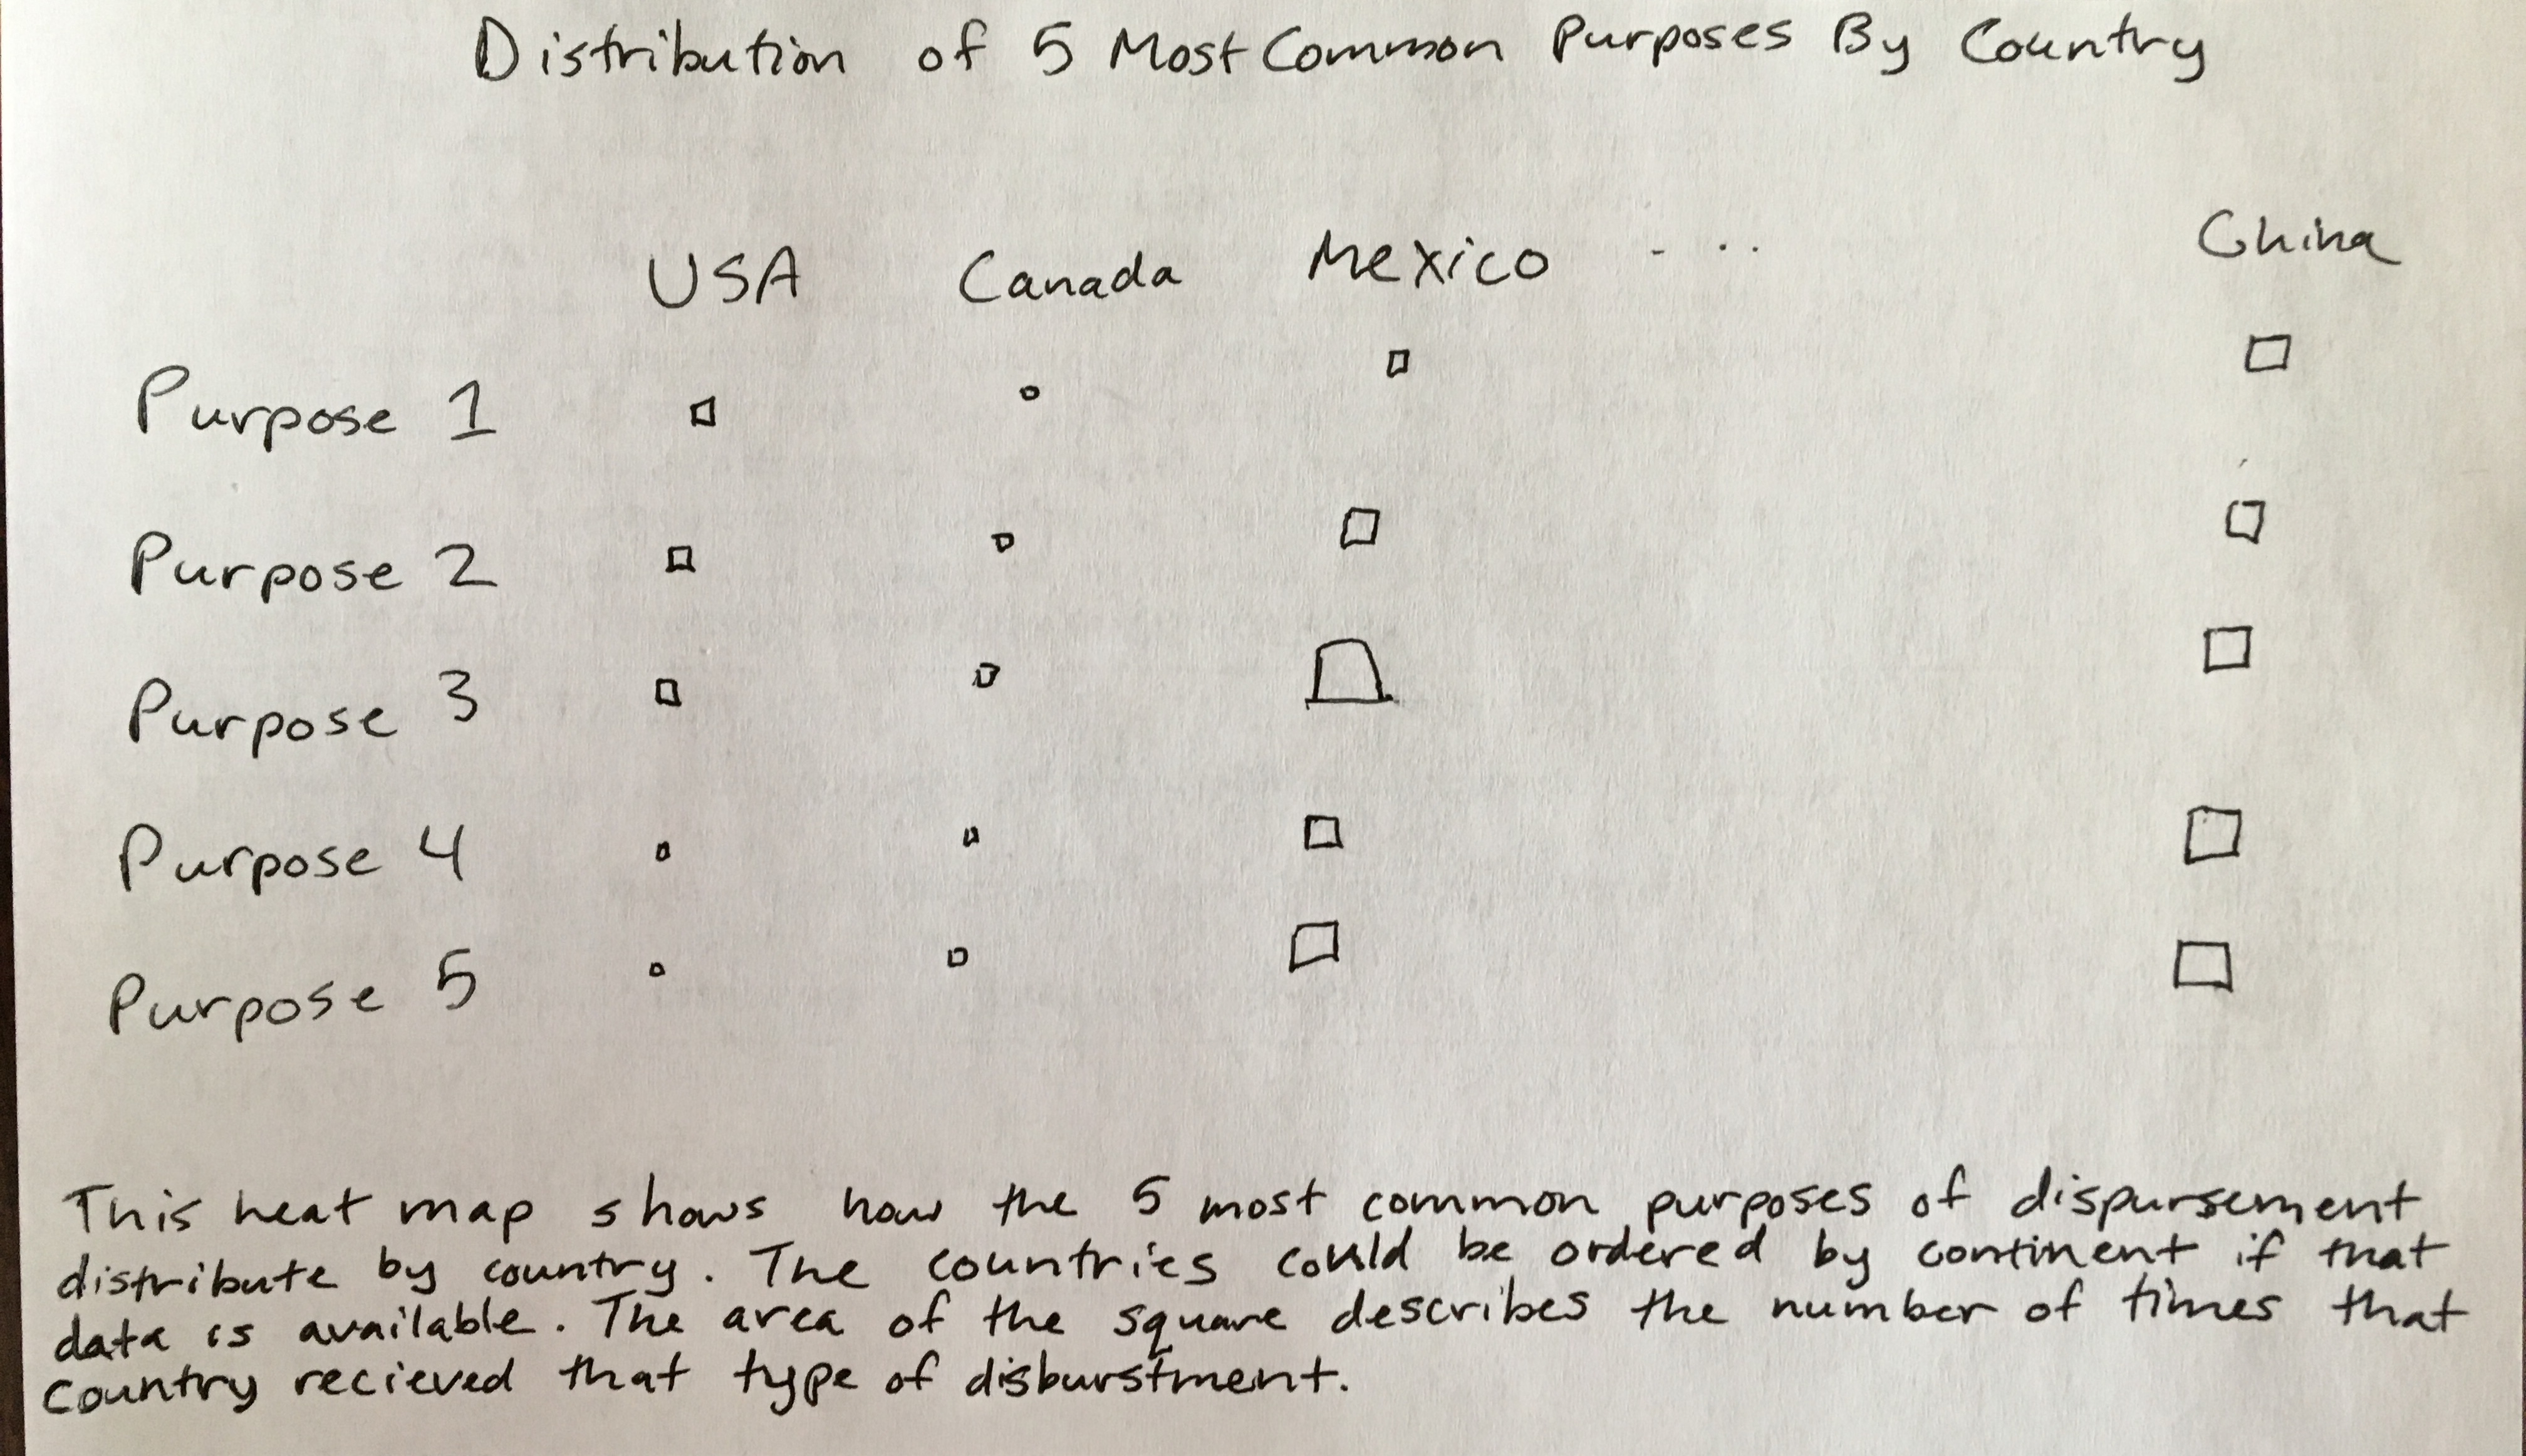 Distribution of 5 Most Common Purposes By Country
USA Canada Mexico ... China
Purpose 1
Purpose 2
Purpose 3
Purpose 4
Purpose 5
This heat map shows how the 5 most common purposes of dispursement
distribute by country. The countries could be ordered by continent if that
data is available. The area of the square describes the number of times that
country recieved that type of disburstment.